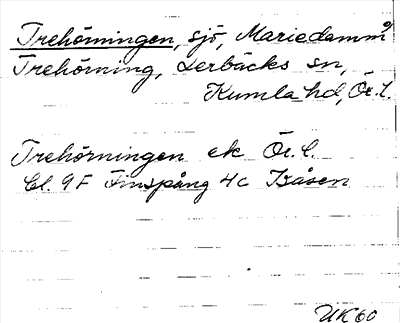 Trehörningen, sjö, Mariedamm
Trehörning, Lerbäcks sn,
Kumla hd, Ör. l.
Trehörningen ek Ör. l.
Bl. 9F Finspång 4c Isåsen
UK 60